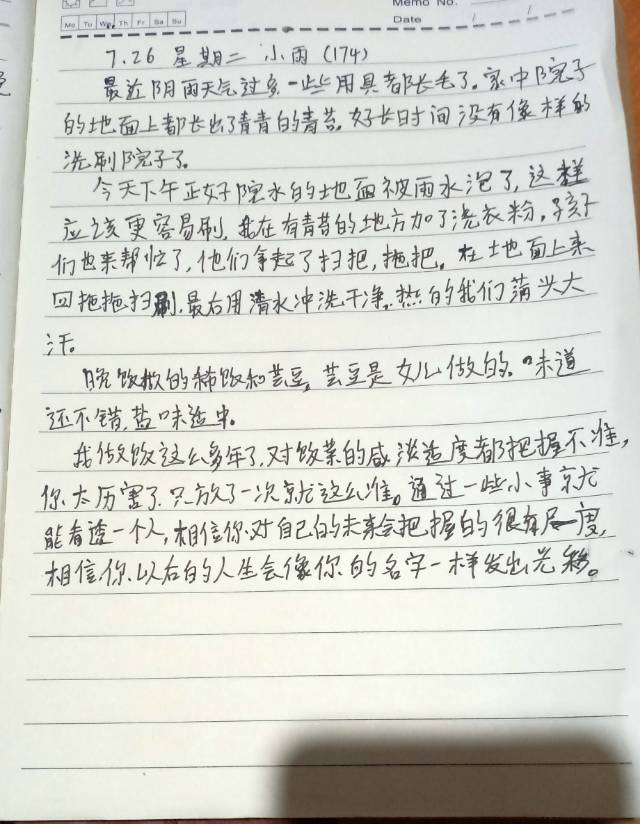 Memo No.
Mo Tu We Th Fr Sa Su
Date / /
7.26 星期二 小雨 (174)
最近阴雨天气过多,一些用具都长毛了。家中院子
的地面上都长出了青青的青苔。好长时间没有像样的
洗刷院子了。
今天下午正好院水的地面被雨水泡了,这样
应该更容易刷,我在有青苔的地方加了洗衣粉,孩子
们也来帮忙了,他们拿起了扫把,拖把,在地面上来
回拖拖扫刷,最右用清水冲洗干净,热的我们满头大
汗。
晚饭做的稀饭和芸豆,芸豆是女儿做的,味道
还不错,盐味适中。
我做饭这么多年了,对饭菜的咸淡适度都把握不准,
你太厉害了,只放了一次就这么准。通过一些小事就
能看透一个人,相信你对自己的未来会把握的很有尺度,
相信你以右的人生会像你的名字一样发出光彩。